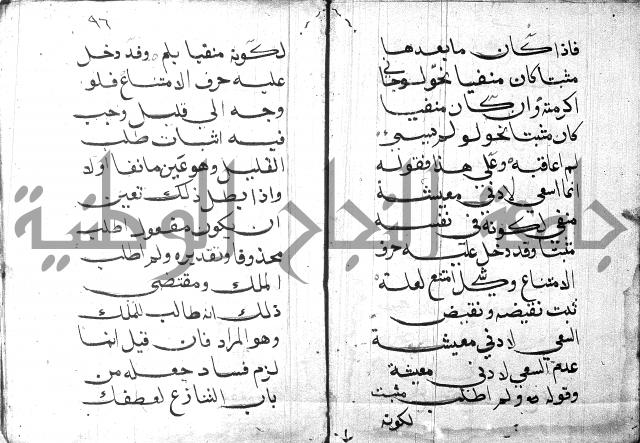 فاذا كان ما بعدها
مثبتا كان منفيا نحو لو جاني
اكرمته وان كان منفيا
كان مثبتا نحو لو لم يسيئ
لم اعاقبه وعلى هذا فقوله
انما اسعى لادنى معيشة
منفي لكونه في نفسه
مثبتا وقد دخل عليه حرف
الامتناع وكل شي امتنع لعلة
ثبت نقيضه ونقيض
السعي لادنى معيشة
عدم السعي لادنى معيشة
وقوله ولم اطلب مثبت
لكونه
٩٦
لكونه منفيا بلم وقد دخل
عليه حرف الامتناع فلو
وجه الى قليل وجب
فيه اثبات طلب
القليل وهو عين ما نفا اولا
واذا بطل ذلك تعين
ان يكون مفعول اطلب
محذوفا وتقديره ولم اطلب
الملك ومقتضى
ذلك انه طالب للملك
وهو المراد فان قيل انما
لزم فساد جعله من
باب التنازع لعطفك
جامعة النجاح الوطنية